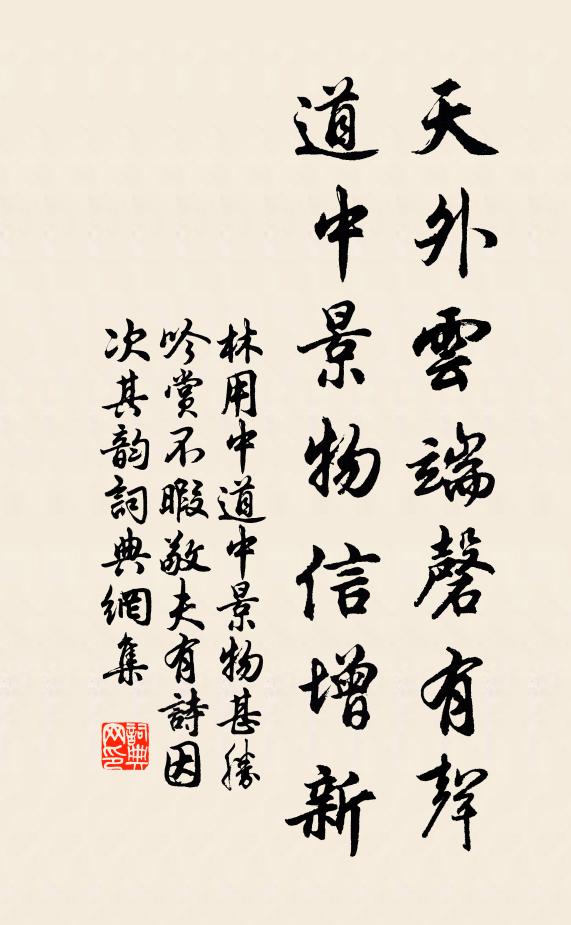 天外雲端磬有聲
道中景物信增新
林用中道中景物甚勝
吟賞不暇敬夫有詩因
次其韵詞典網集
詞典網印